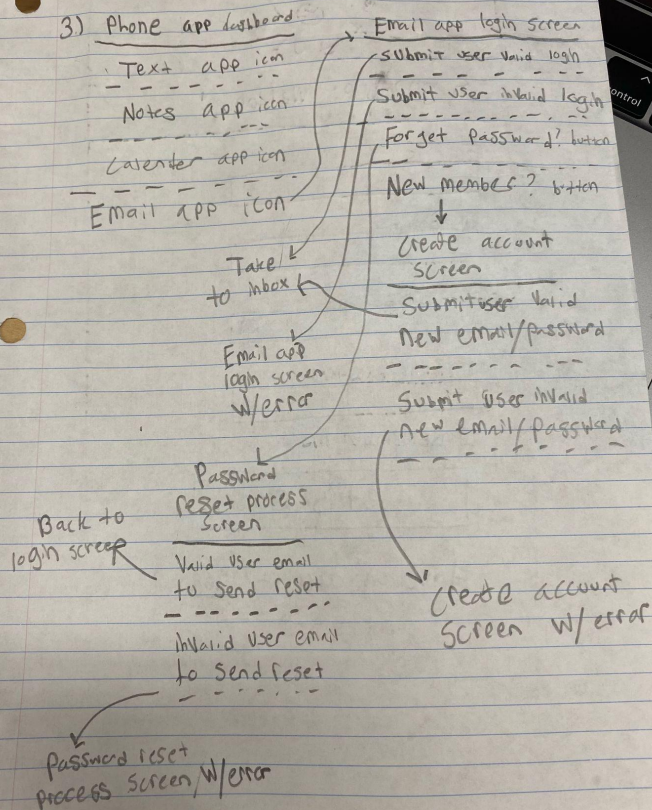 3) Phone app dashboard
Text app icon
Notes app icon
Calender app icon
Email app icon
Email app login screen
submit user valid login
Submit user invalid login
Forget password? button
New member? button
Create account
screen
Submit user valid
new email/password
Submit user invalid
new email/password
Create account
screen w/error
Take
to inbox
Email app
login screen
w/error
Password
reset process
screen
Valid user email
to send reset
invalid user email
to send reset
Back to
login screen
Password reset
process screen w/error
ontrol